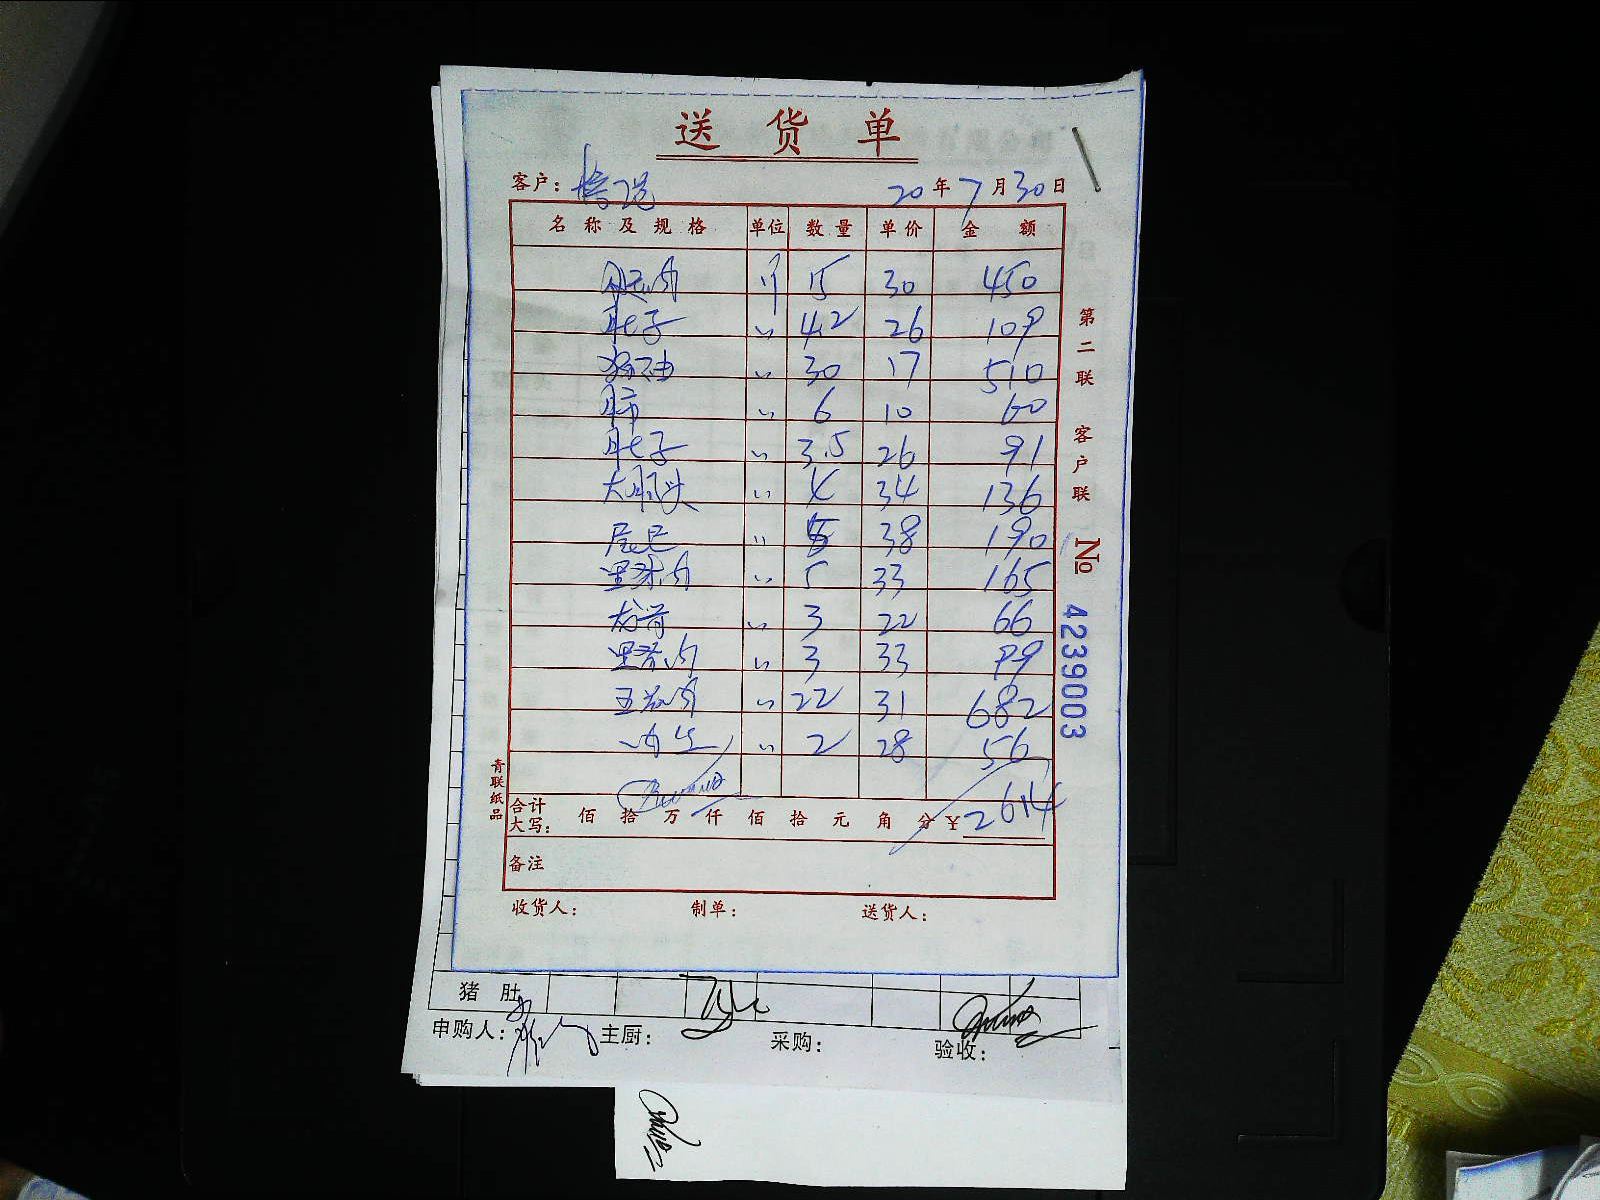 送货单
客户： 20年7月30日
名称及规格 单位 数量 单价 金额
斤 15 30 450
肚子 〃 4.2 26 109
猪油 〃 30 17 510
肺 〃 6 10 60
肚子 〃 3.5 26 91
大肠头 〃 4 34 136
〃 5 38 190
里脊肉 〃 5 33 165
龙骨 〃 3 22 66
里脊肉 〃 3 33 99
五花肉 〃 22 31 682
〃 2 28 56
合计大写： 佰 拾 万 仟 佰 拾 元 角 分 ￥2614
备注
收货人： 制单： 送货人：
第二联 客户联
No 4239003
青联纸品
猪肚
申购人： 主厨： 采购： 验收：